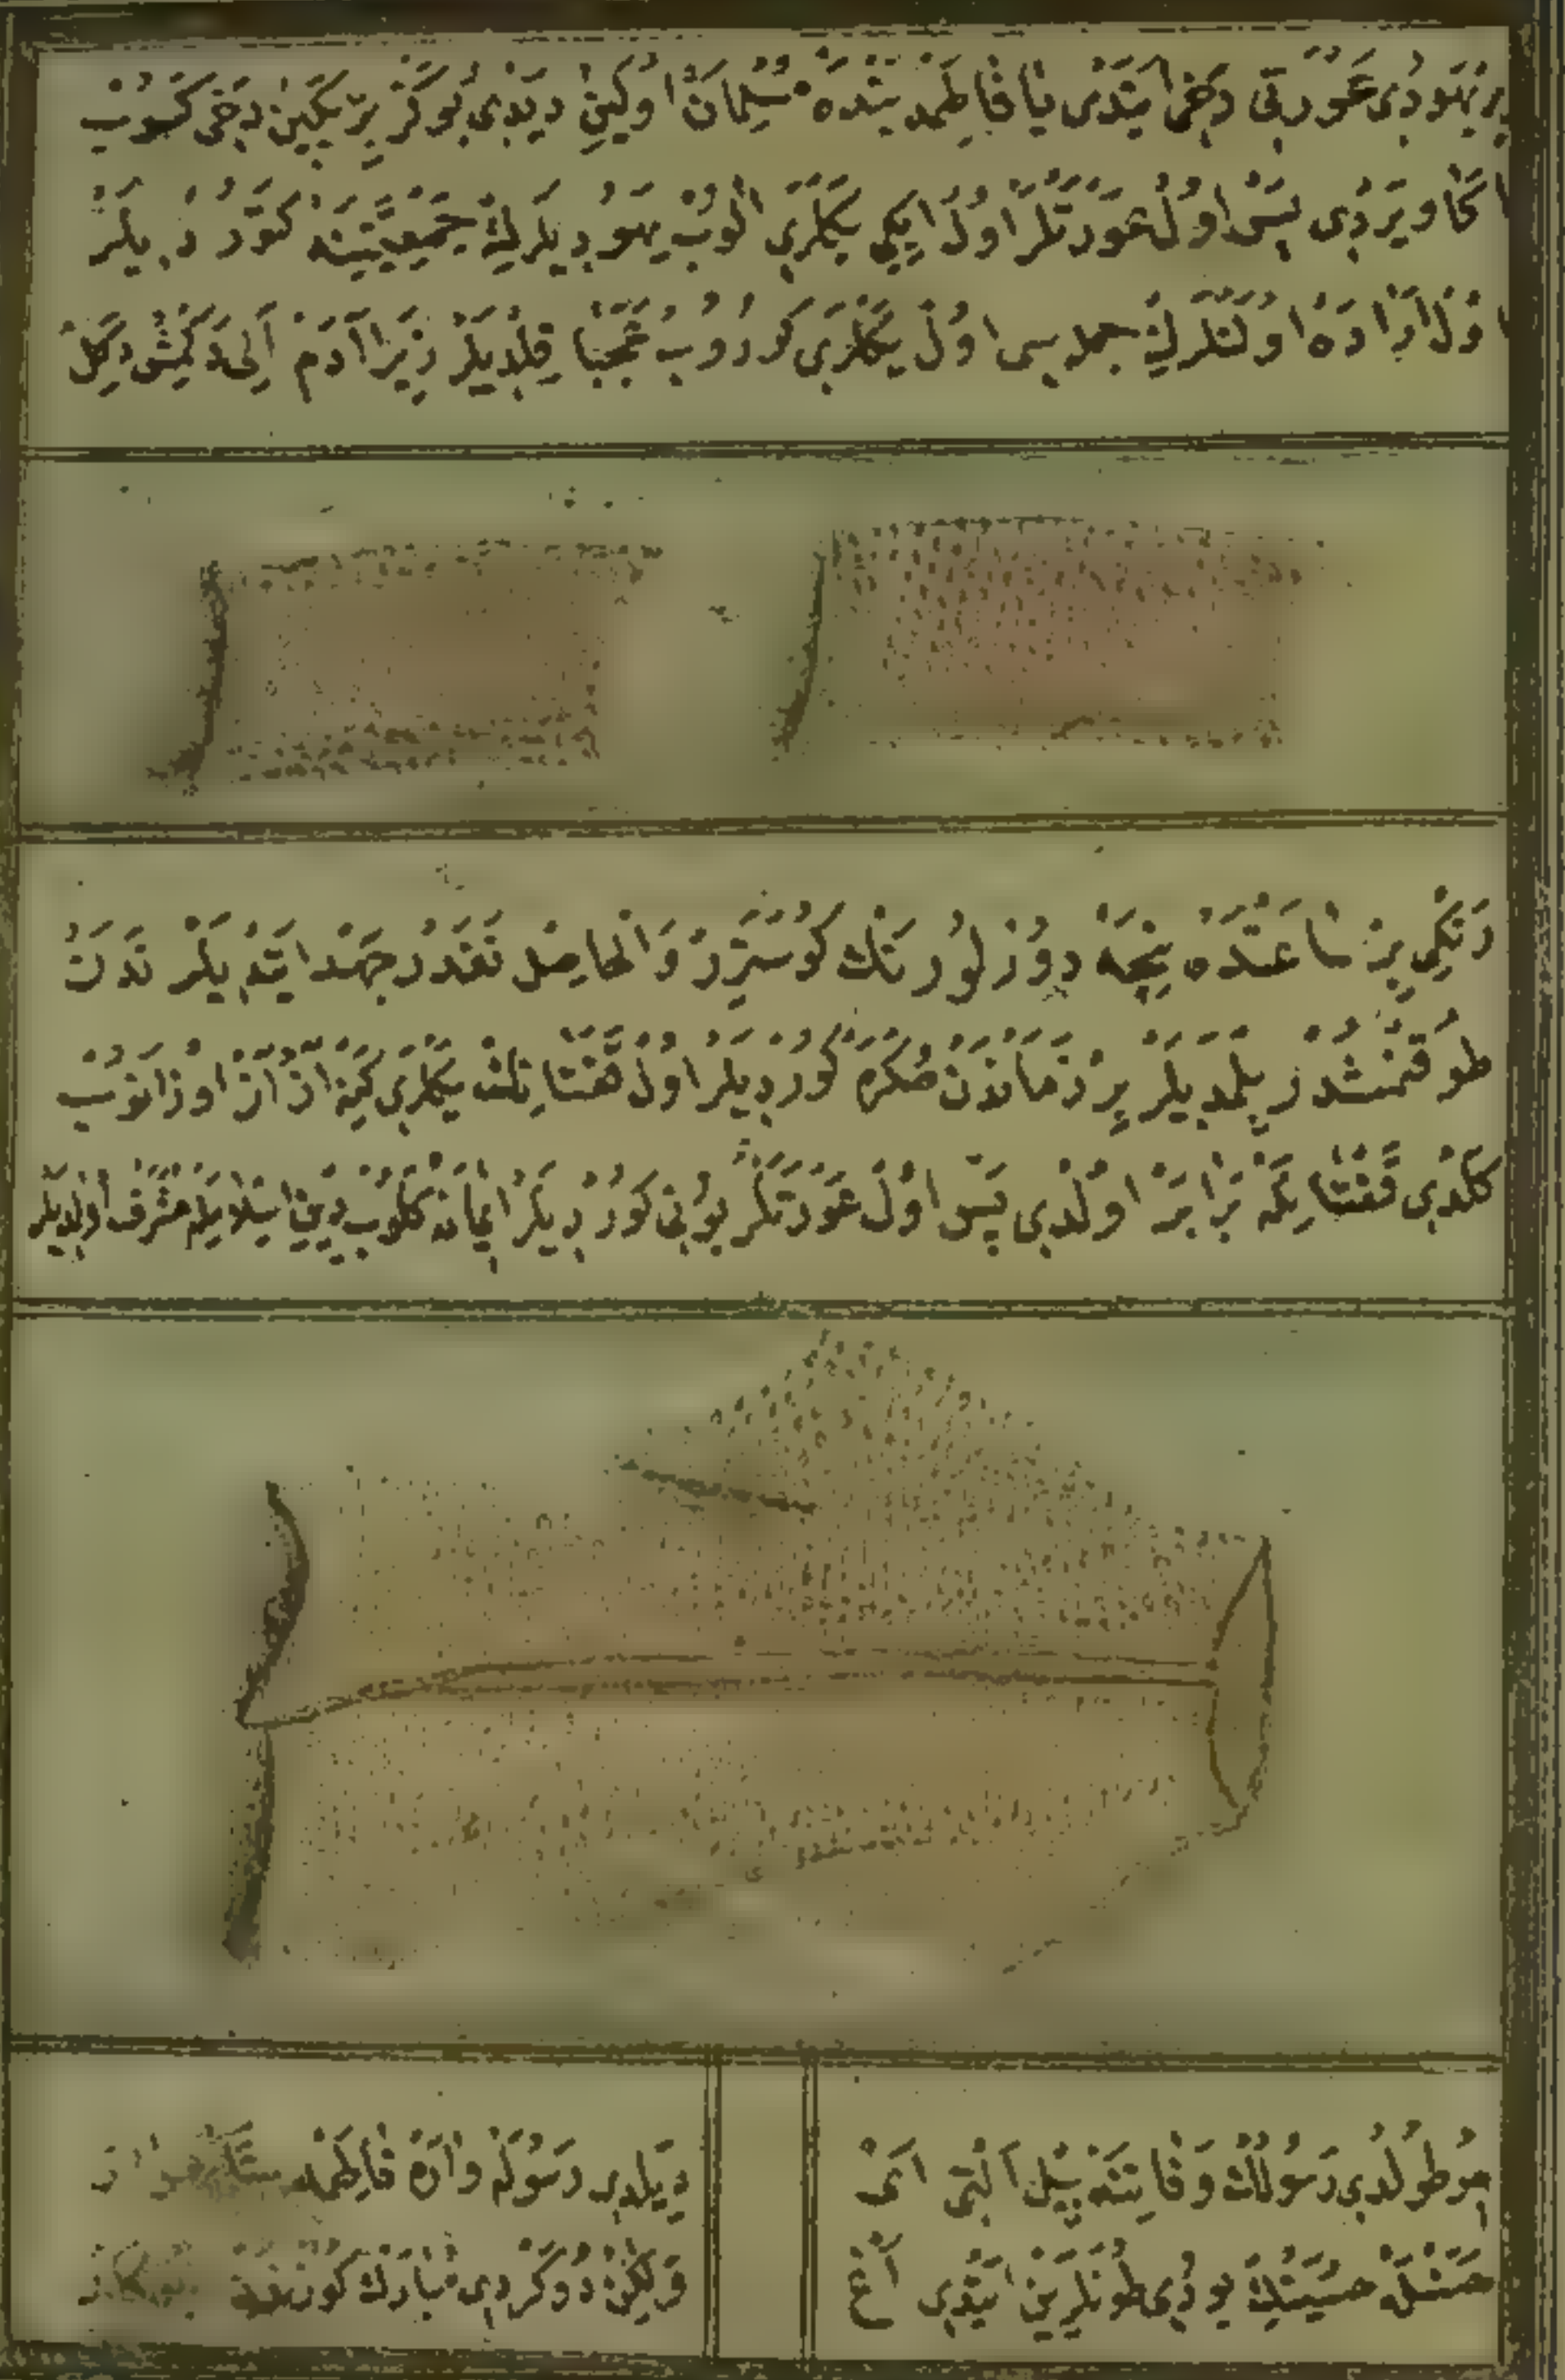 بر یهودی عورتی دخی ایتدی یا فاطمه بنده مسلمان اولین دیدی بو کز بر یکین دخی کسوب
اکا ویردی پس اول عورتلر اول ایکی یکلری الوب یهودیلرك جمعیتینه کتوردیلر
اول ارادە اولنلرك جمله سی اول یکلری کوروب عجبا قلدیلر زیرا آدم الی دکمش دکل
رنکی بر ساعتده نیجه دورلو رنك کوستریر والحاصل نقدر جهد ایتدیلر ندن
طوقنمشدر بلمدیلر بر زماندن صکره کوردیلر اول قفتانك یکلری کنه از از اوزانوب
کلدی قفتانیله برابر اولدی پس اول عورتلر بونی کوردیلر ایمانه کلوب دین اسلامیله مشرف اولدیلر
طولدی رسولك وفاتنه بیل التی ای
دیلدی رسوله واره فاطمه
حسنله حسینك یودی طونلرین ایتدی اغ
ولیکن دوکردی مبارك کوزندن